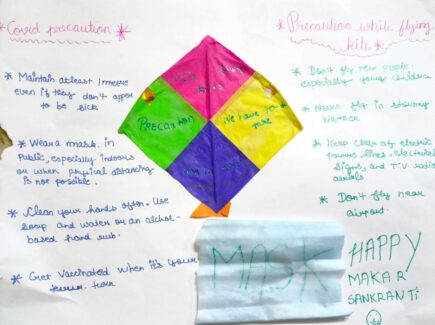 * Covid precaution *
* Maintain atleast 1 metre
even if they don't apper
to be sick
* Wear a mask in
public, especially indoors
or when physical distancing
is not possible.
* Clean your hands often. Use
soap and water or an alchol-
based hand rub.
* Get vaccinated when it's your
turn
PRECAUTION
We have to
take
MASK
* Precaution while flying
kite *
* Don't fly near people
especially young children
* Never fly in stormy
* Keep clear of electric
power lines, electrical
signs, and TV radio
aerials
* Don't fly near
airport.
HAPPY
MAKAR
SANKRANTI